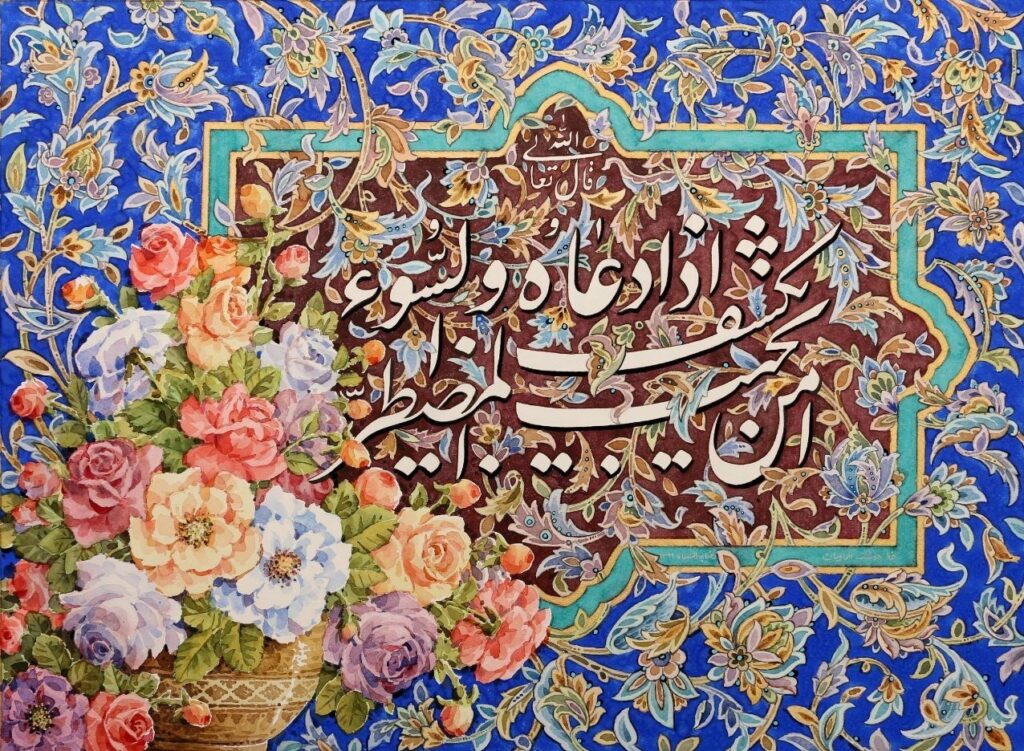 قال الله تعالی
امن یجیب المضطر
اذا دعاه و یکشف السوء